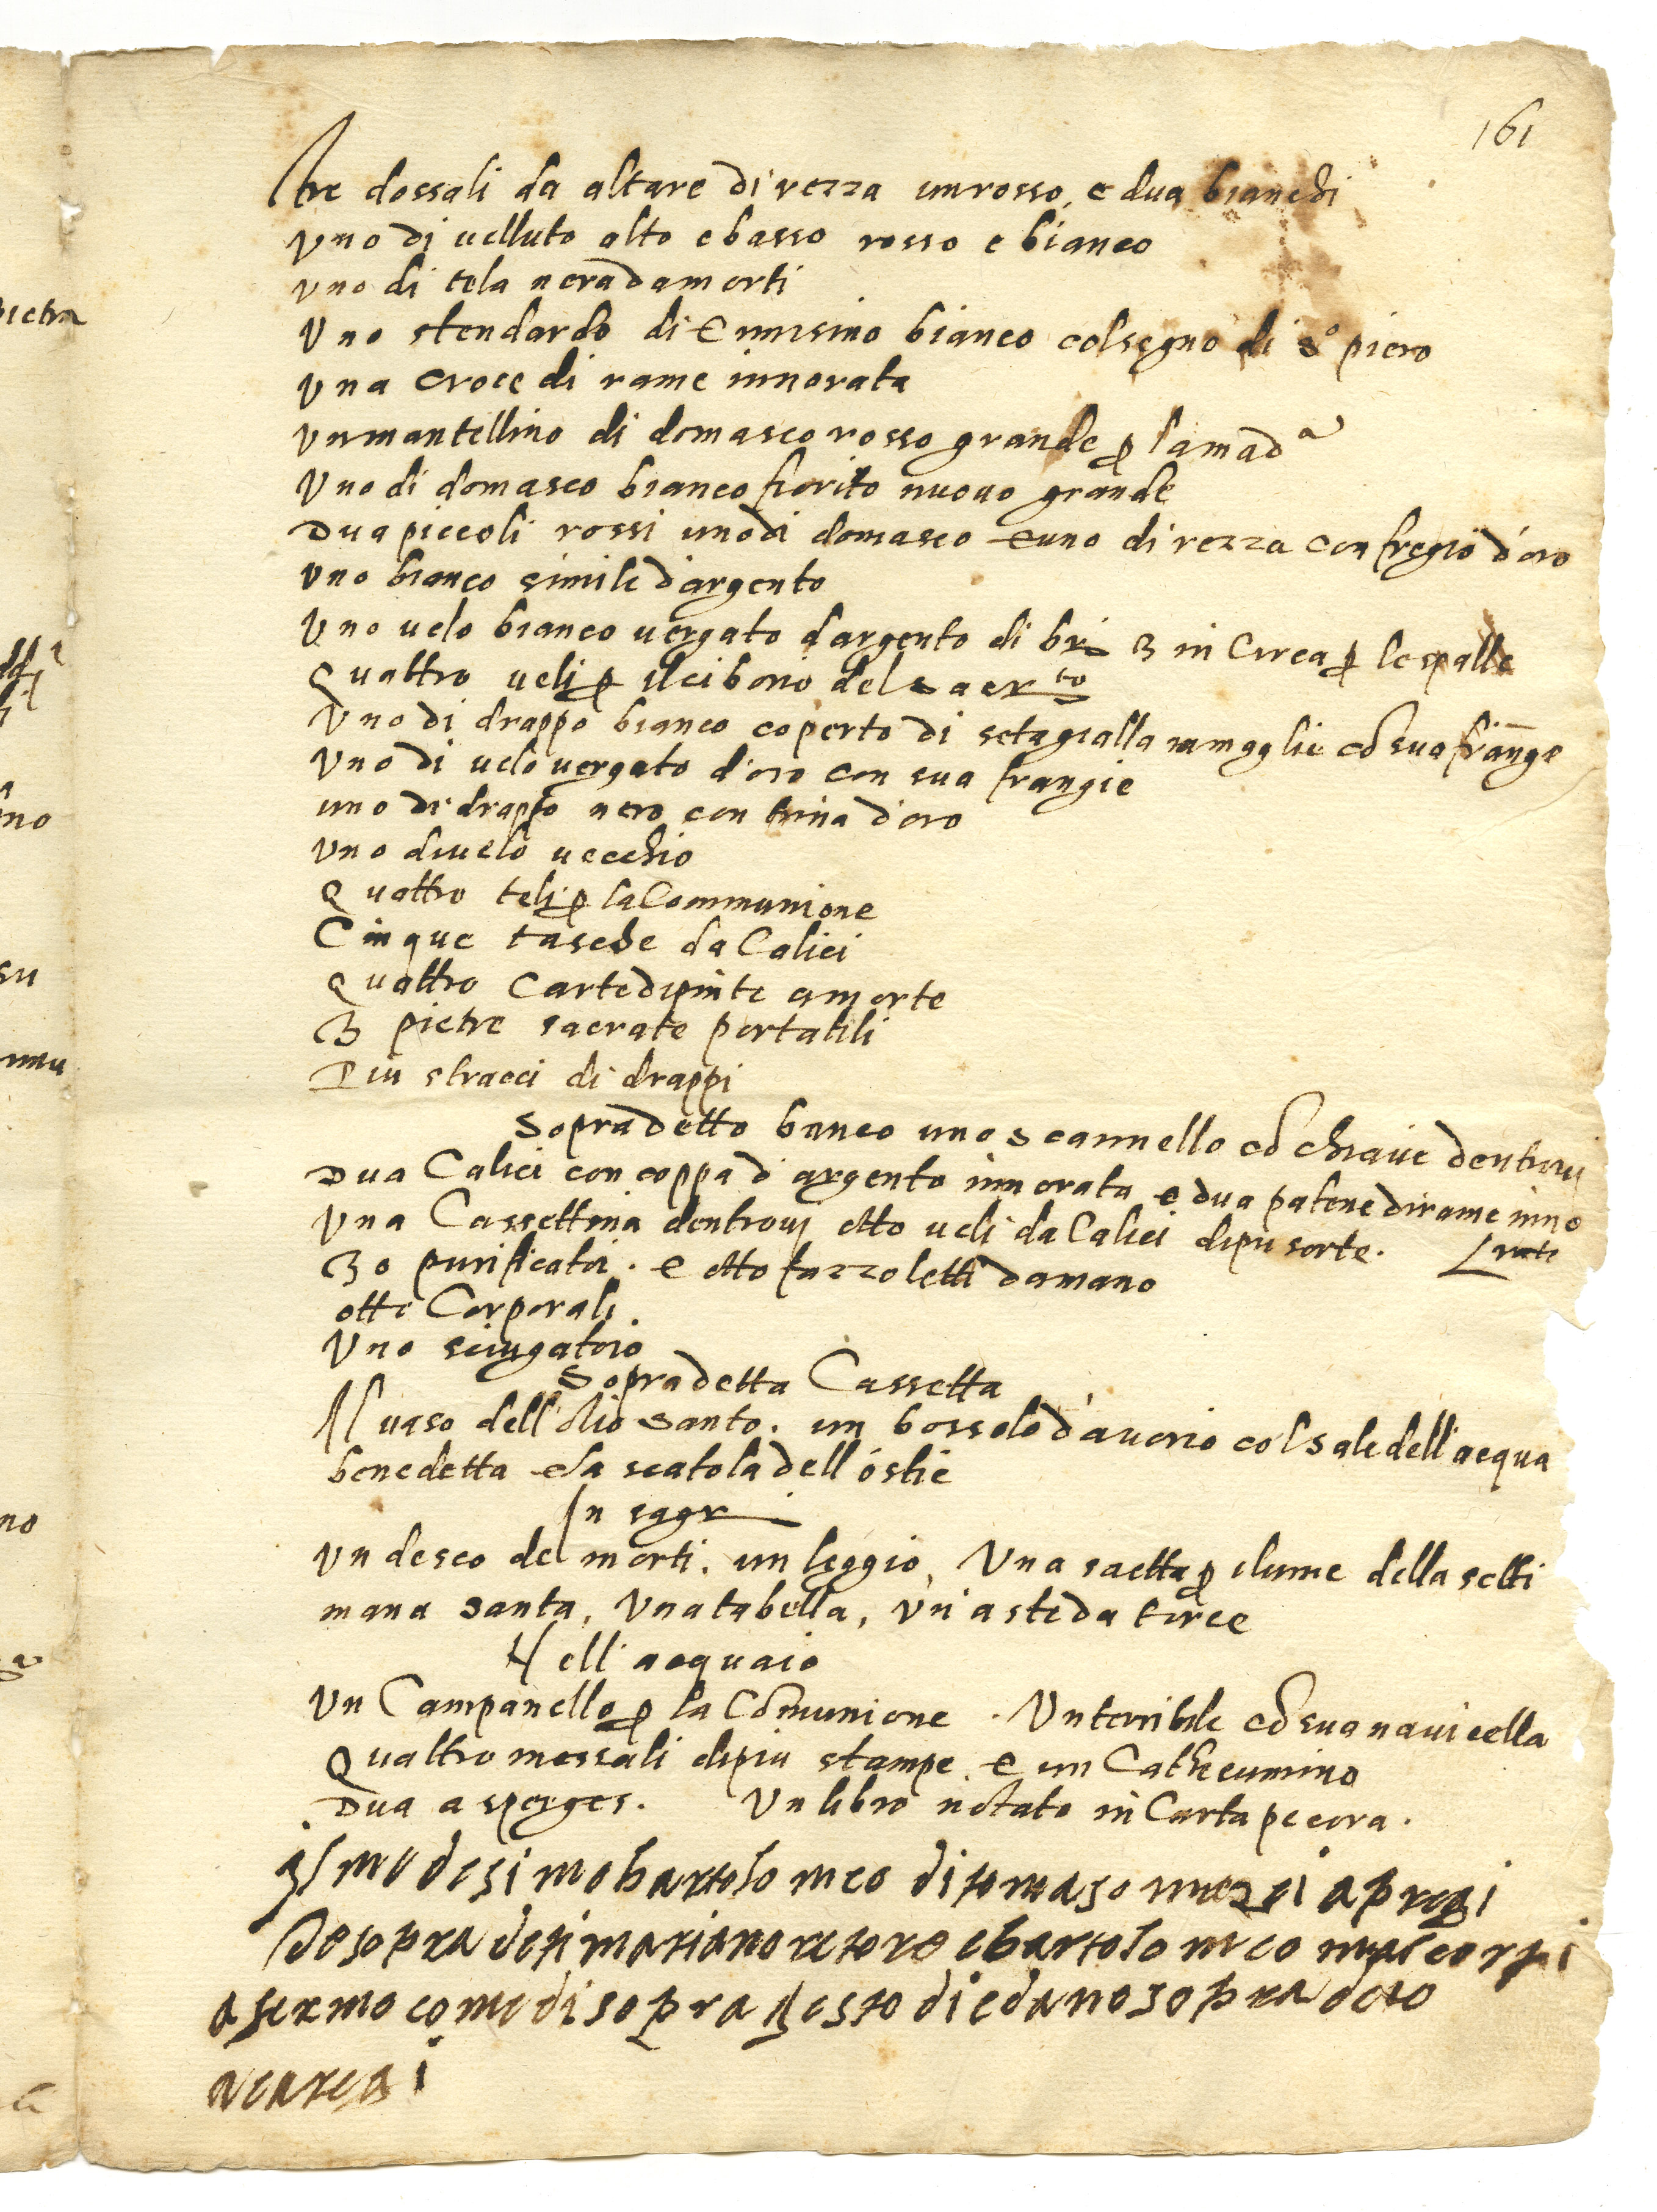 161
tre dossali da altare di rezza un rosso, e dua bianchi
Uno di velluto alto e basso rosso e bianco
uno di tela nera da morti
Uno stendardo di Ermisino bianco col segno di S.º piero
Una croce di rame innorata
Un mantellino di domasco rosso grande p la mad.a
Uno di domasco bianco fiorito nuovo grande
Dua piccoli rossi uno di domasco e uno di rezza con fregio d'oro
Uno bianco simile d'argento
Uno velo bianco vergato d'argento di br 3 in Circa p le spalle
Quattro veli p il ciborio del sacr.to
Uno di drappo bianco coperto di seta gialla in maglie cō sua frange
Uno di velo vergato d'oro con sua frangie
uno di drappo nero con trina d'oro
Uno di velo vecchio
Quattro teli p la Communione
Cinque tasche da Calici
Quattro Carte dipinte a morte
3 pietre sacrate portatili
Piu stracci di drappi
Sopradetto banco uno scannello cō chiave dentrovj
Dua Calici con coppa d'argento innorata e dua patene di rame inno
rate
Una Cassettina dentrovj otto veli da Calici di piu sorte.
30 purificatoi. e otto fazzoletti da mano
otto Corporali
Uno sciugatoio
Sopradetta Cassetta
Il vaso dell'olio santo. un bossolo d'avorio col sale dell'acqua
benedetta e la scatola dell'ostie
In sagr
Un desco de morti. un leggio, Una saetta p il ume della setti
mana santa, Una tabella, Un'aste da torce
Nell'acquaio
Un Campanello p la Cōmunione. Un terribile cō sua navicella
Quattro messali di piu stampe e un Catheumino
Dua asperges. Un libro notato in Carta pecora.
Il medesimo bartolomeo di tomaso
de sopra deti mariano retore e bartolomeo
a fermo come di sopra questo di e dano sopra deto